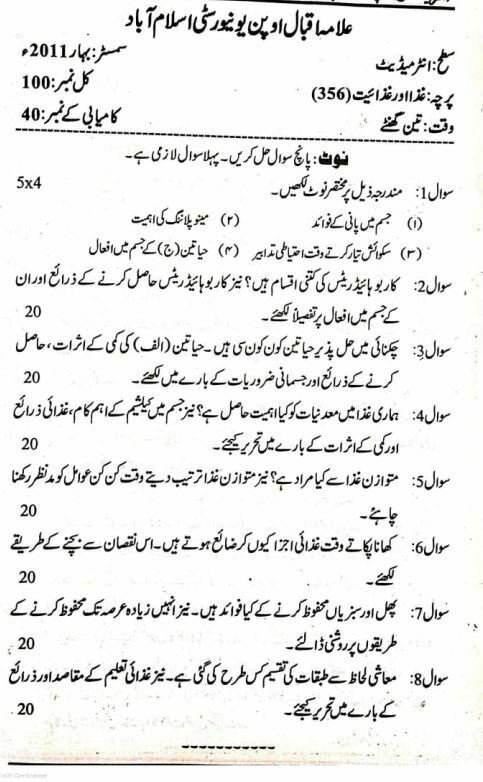 علامہ اقبال اوپن یونیورسٹی اسلام آباد
سطح: انٹرمیڈیٹ سمسٹر: بہار 2011ء
پرچہ: غذا اور غذائیت (356) کل نمبر: 100
وقت: تین گھنٹے کامیابی کے نمبر: 40
نوٹ: پانچ سوال حل کریں۔ پہلا سوال لازمی ہے۔
سوال 1: مندرجہ ذیل پر مختصر نوٹ لکھیں۔ 5x4
(۱) جسم میں پانی کے فوائد (۲) مینو پلاننگ کی اہمیت
(۳) سکوائش تیار کرتے وقت احتیاطی تدابیر (۴) حیاتین (ج) کے جسم میں افعال
سوال 2: کاربوہائیڈریٹس کی کتنی اقسام ہیں؟ نیز کاربوہائیڈریٹس حاصل کرنے کے ذرائع اور ان
کے جسم میں افعال پر تفصیلاً لکھیئے۔ 20
سوال 3: چکنائی میں حل پذیر حیاتین کون کون سی ہیں۔ حیاتین (الف) کی کمی کے اثرات، حاصل
کرنے کے ذرائع اور جسمانی ضروریات کے بارے میں لکھیئے۔ 20
سوال 4: ہماری غذا میں معدنیات کو کیا اہمیت حاصل ہے؟ نیز جسم میں کیلشیم کے اہم کام، غذائی ذرائع
اور کمی کے اثرات کے بارے میں تحریر کیجئے۔ 20
سوال 5: متوازن غذا سے کیا مراد ہے؟ نیز متوازن غذا ترتیب دیتے وقت کن کن عوامل کو مدنظر رکھنا
چاہئے۔ 20
سوال 6: کھانا پکاتے وقت غذائی اجزا کیوں کر ضائع ہوتے ہیں۔ اس نقصان سے بچنے کے طریقے
لکھیئے۔ 20
سوال 7: پھل اور سبزیاں محفوظ کرنے کے کیا فوائد ہیں۔ نیز انہیں زیادہ عرصہ تک محفوظ کرنے کے
طریقوں پر روشنی ڈالئے۔ 20
سوال 8: معاشی لحاظ سے طبقات کی تقسیم کس طرح کی گئی ہے۔ نیز غذائی تعلیم کے مقاصد اور ذرائع
کے بارے میں تحریر کیجئے۔ 20